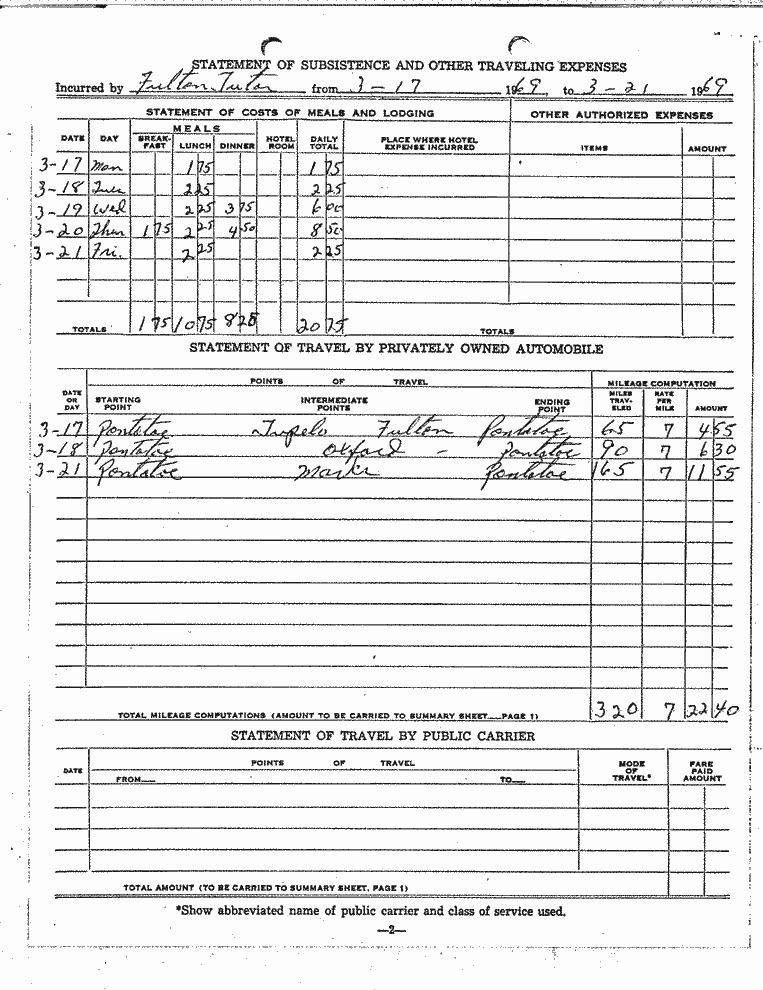 STATEMENT OF SUBSISTENCE AND OTHER TRAVELING EXPENSES
Incurred by Fulton Tutor from 3-17 1969 to 3-21 1969
STATEMENT OF COSTS OF MEALS AND LODGING OTHER AUTHORIZED EXPENSES
DATE DAY MEALS HOTEL ROOM DAILY TOTAL PLACE WHERE HOTEL EXPENSE INCURRED ITEMS AMOUNT
BREAK-FAST LUNCH DINNER
3-17 Mon 1 75 1 75
3-18 Tues 2 25 2 25
3-19 Wed 2 25 3 75 6 00
3-20 Thur 1 75 2 25 4 50 8 50
3-21 Fri. 2 25 2 25
TOTALS 1 75 10 75 8 25 20 75 TOTALS
STATEMENT OF TRAVEL BY PRIVATELY OWNED AUTOMOBILE
POINTS OF TRAVEL MILEAGE COMPUTATION
DATE OR DAY STARTING POINT INTERMEDIATE POINTS ENDING POINT MILES TRAV-ELED RATE PER MILE AMOUNT
3-17 Pontotoc Tupelo Fulton Pontotoc 65 7 4 55
3-18 Pontotoc Oxford - Pontotoc 90 7 6 30
3-21 Pontotoc Marks Pontotoc 165 7 11 55
TOTAL MILEAGE COMPUTATIONS (AMOUNT TO BE CARRIED TO SUMMARY SHEET—PAGE 1) 320 7 22 40
STATEMENT OF TRAVEL BY PUBLIC CARRIER
DATE POINTS OF TRAVEL MODE OF TRAVEL* FARE PAID AMOUNT
FROM— TO—
TOTAL AMOUNT (TO BE CARRIED TO SUMMARY SHEET, PAGE 1)
*Show abbreviated name of public carrier and class of service used.
—2—